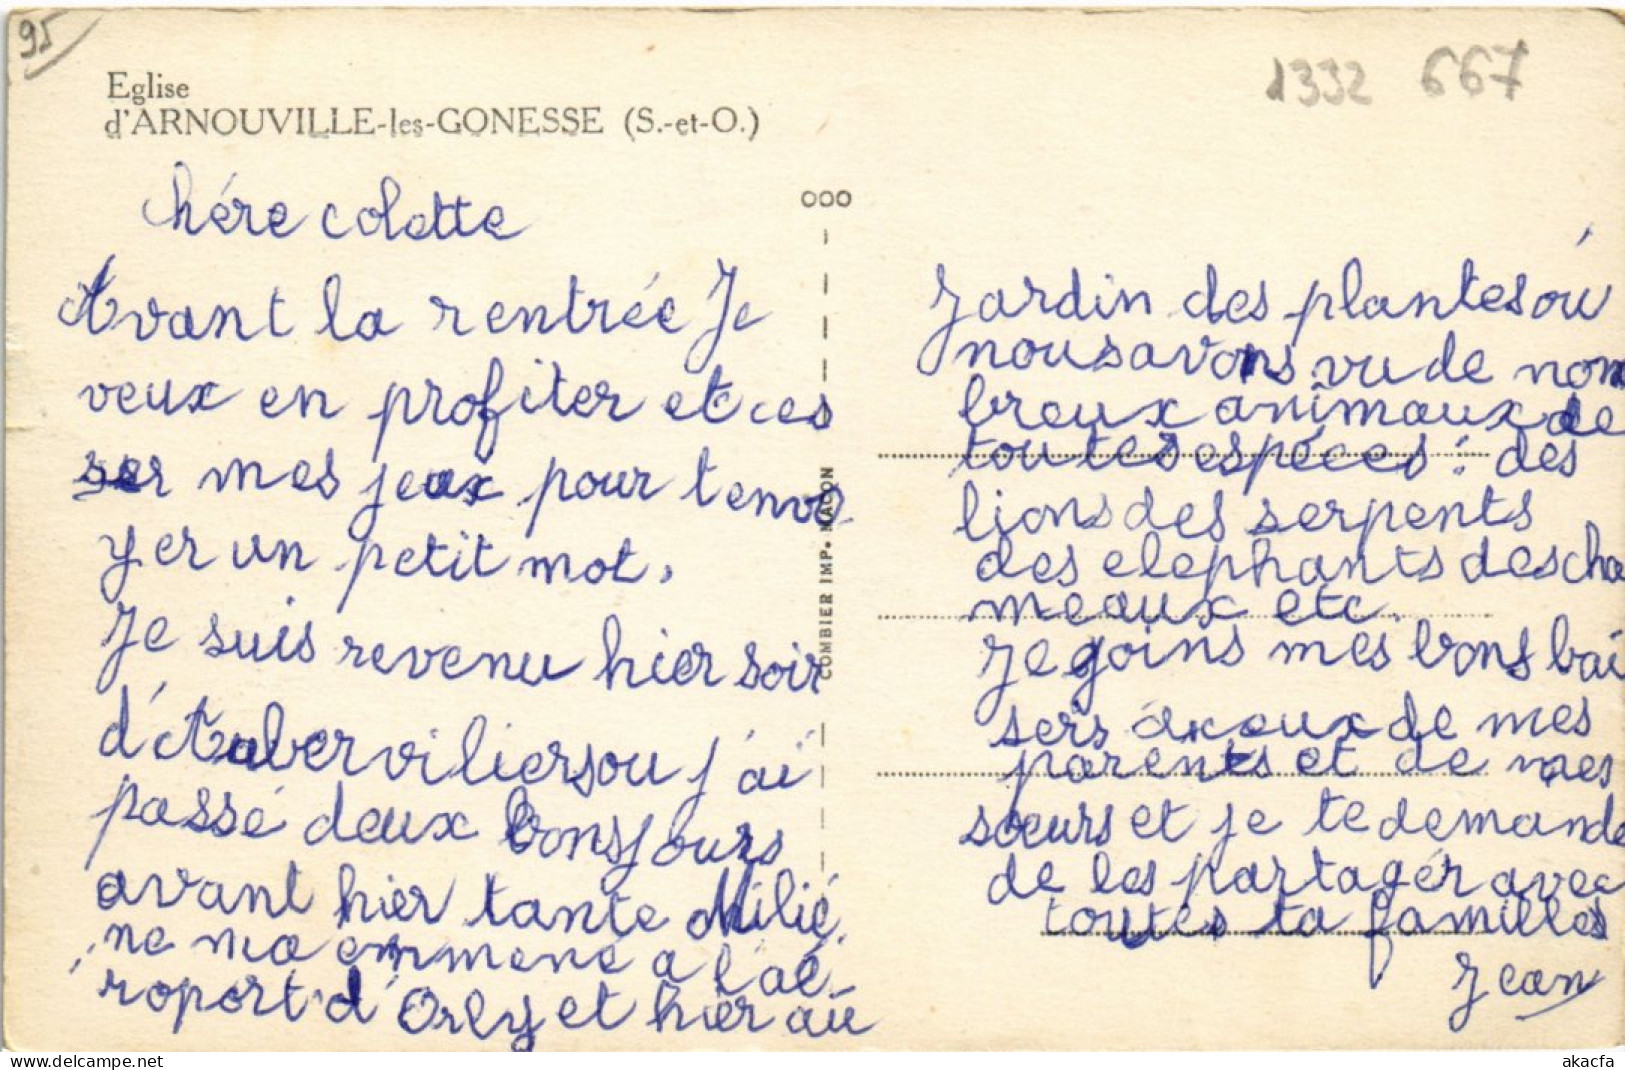 95
1332 667
Eglise
d'ARNOUVILLE-les-GONESSE (S.-et-O.)
Chére colette
Avant la rentrée Je
veux en profiter et ces
ser mes jeux pour t envo
yer un petit mot.
Je suis revenu hier soir
d'Auberviliers ou j'ai
passé deux bons jours
avant hier tante Milié
ne ma emmené a l'aé
roport d'Orly et hier au
ooo
COMBIER IMP. MACON
Jardin des plantes ou
nous avons vu de nom
breux animaux de
toutes espéces : des
lions des serpents
des elephants des cha
meaux etc.
Je goins mes bons bai
sers a ceux de mes
parents et de mes
sœurs et je te demande
de les partagér avec
toutes ta familles
Jean
akacfa